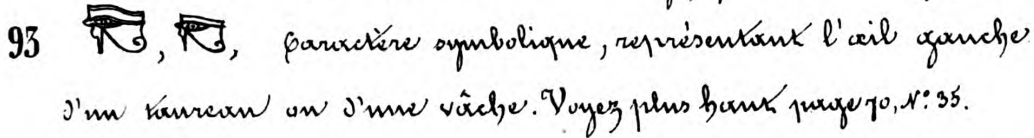 93 𓂀, 𓂀, Caractère symbolique, représentant l'œil gauche
d'un taureau ou d'une vâche. Voyez plus haut page 70, N.° 35.